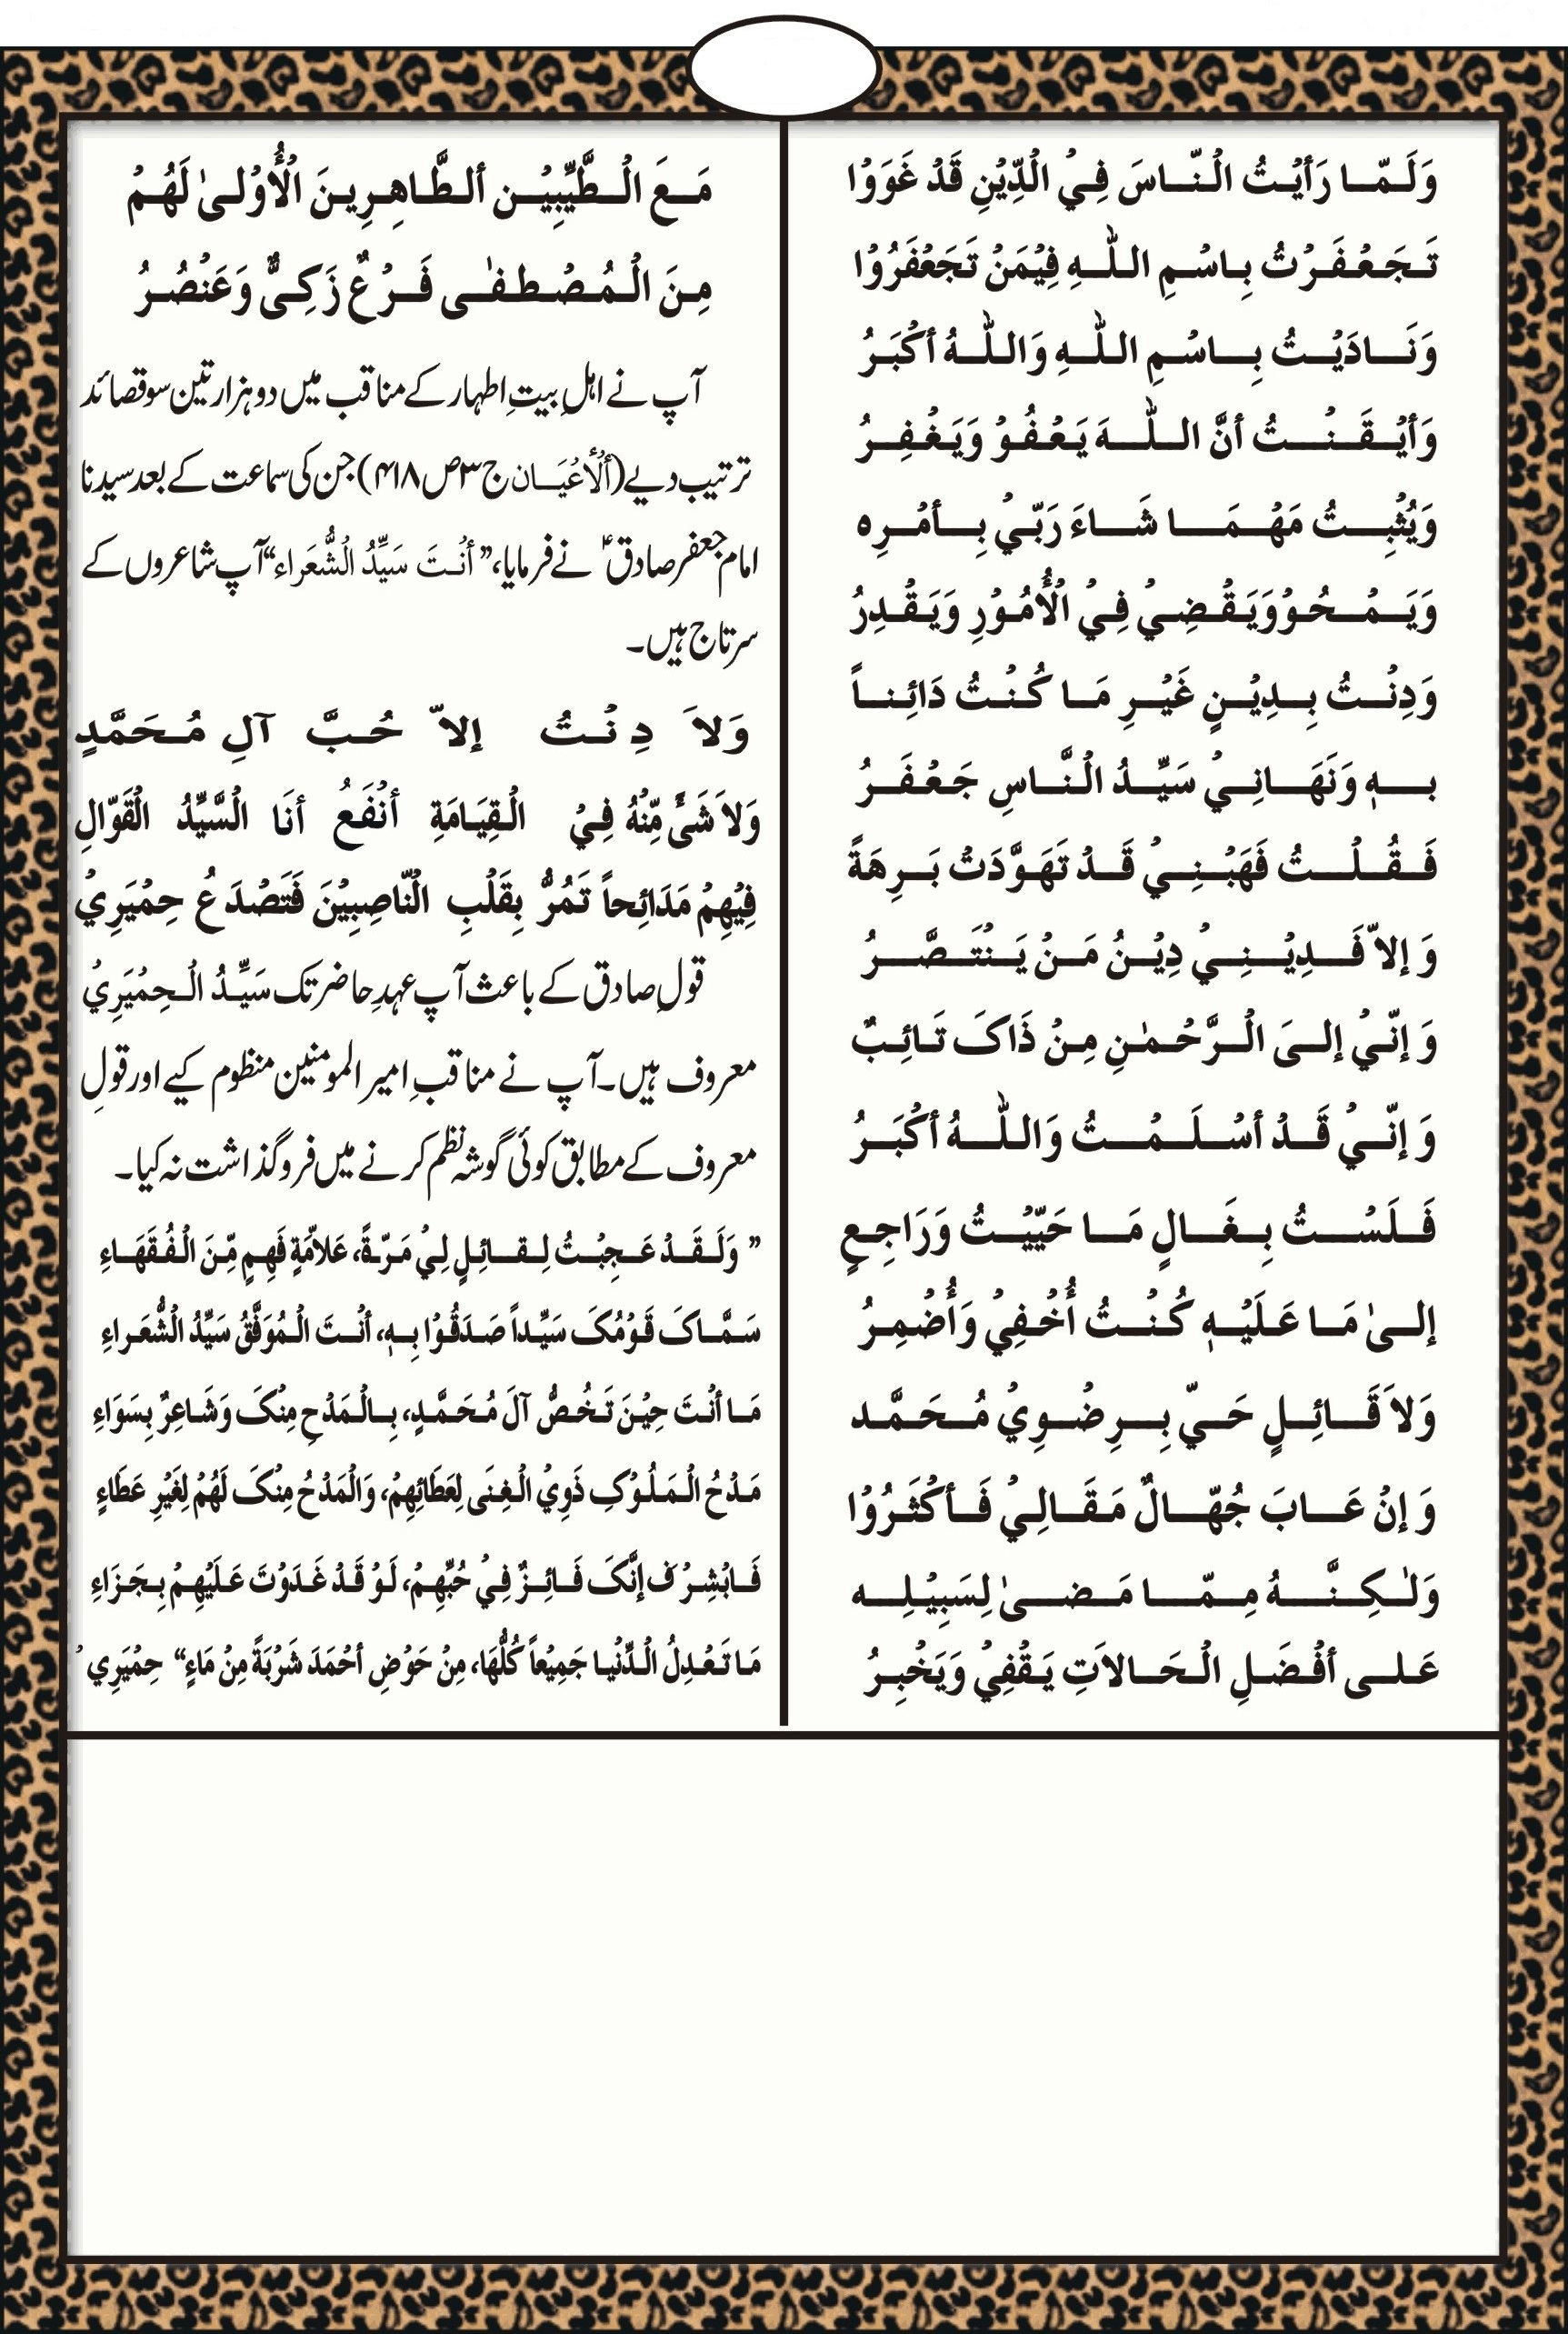 وَلَـمّـا رَأيْـتُ الْـنّـاسَ فِـيْ الْدِّيْنِ قَدْ غَوَوْا
تَـجَـعْـفَـرْتُ بِـاسْـمِ الـلّـهِ فِيْمَنْ تَجَعْفَرُوْا
وَنَـادَيْـتُ بِـاسْـمِ الـلّـهِ وَالـلّـهُ أكْبَـرُ
وَأيْـقَـنْـتُ أنَّ الـلّـهَ يَـعْـفُـوْ وَيَـغْـفِـرُ
وَيُثْبِـتُ مَهْـمَـا شَـاءَ رَبّـيْ بِـأمْـرِه
وَيَـمْـحُـوْوَيَـقْـضِـيْ فِـيْ الْأُمُـوْرِ وَيَـقْـدِرُ
وَدِنْـتُ بِـدِيْـنٍ غَيْـرِ مَـا كُـنْـتُ دَائِـنـاً
بـهٖ وَنَـهَـانِـيْ سَيِّـدُ الْـنَّـاسِ جَـعْـفَـرُ
فَـقُـلْـتُ فَهَبْـنِـيْ قَـدْ تَهَـوَّدَتْ بَـرِهَةً
وَ إلاّ فَـدِيْـنِـيْ دِيْـنُ مَـنْ يَـنْتَـصَّـرُ
وَ إنّـيْ إلـىَ الْـرَّحْـمٰـنِ مِـنْ ذَاکَ تَـائِـبٌ
وَ إنّـيْ قَـدْ أسْـلَـمْـتُ وَالـلّـهُ أكْبَـرُ
فَـلَسْـتُ بِـغَـالٍ مَـا حَيّيْـتُ وَرَاجِـعٍ
إلـىٰ مَـا عَـلَيْـهِ كُـنْـتُ أُخْـفِيْ وَأُضْمِـرُ
وَلاَ قَـائِـلٍ حَـيّ بِـرِضْـوِيْ مُـحَـمَّـد
وَ إنْ عَـابَ جُهّـالٌ مَـقَـالِـيْ فَـأكْثَـرُوْا
وَلٰـكِـنَّـهُ مِـمّـا مَـضـىٰ لِسَبِيْلِـه
عَـلـى أفْـضَـلِ الْـحَـالاَتِ يَـقْفِيْ وَيَخْبِـرُ
مَـعَ الْـطَّيِّبِيْـن ألـطَّـاهِـرِيـنَ الْأُوْلـىٰ لَهُـمْ
مِـنَ الْـمُـصْـطـفٰـى فَـرْعٌ زَكِـىٌّ وَعَنْصُـرُ
آپ نے اہلِ بیتِ اطہار کے مناقب میں دو ہزار تین سو قصائد
ترتیب دیے (ألْأعْيَـان ج ۳ ص ۴۱۸) جن کی سماعت کے بعد سیدنا
امام جعفر صادقؑ نے فرمایا، ”أنْـتَ سَيِّدُ الْشُّعَراء“ آپ شاعروں کے
سرتاج ہیں۔
وَلاَ دِنْـتُ إلاّ حُـبَّ آلِ مُـحَـمَّدٍ
وَلاَ شَىًٔ مِّنْهُ فِـيْ الْـقِيَـامَةِ أنْفَعُ أنَا الْسَّيِّدُ الْقَوّالِ
فِيْهِمْ مَدَائِحاً تَمُرُّ بِقَلْبِ الْنّاصِبِيْنَ فَتَصْدَعُ حِمْيَرِيْ
قولِ صادق کے باعث آپ عہدِ حاضر تک سَيِّـدُ الْـحِمْيَرِيْ
معروف ہیں۔ آپ نے مناقبِ امیر المومنین منظوم کیے اور قولِ
معروف کے مطابق کوئی گوشہ نظم کرنے میں فروگذاشت نہ کیا۔
” وَلَـقَـدْ عَـجِبْـتُ لِـقـائِـلٍ لِـيْ مَـرّةً، عَلاّمَةٍ فَهِـمٍ مِّـنَ الْـفُـقَهَـاءِ
سَـمَّـاکَ قَـوْمُکَ سَيِّـداً صَـدَقُـوْا بِـهٖ، أنْـتَ الْـمُوَفَّقُ سَيِّدُ الْشُّعَراءِ
مَـا أنْـتَ حِيْـنَ تَـخُـصُّ آلَ مُـحَـمَّـدٍ، بِـالْـمَدْحِ مِنْکَ وَشَـاعِرٌ بِسَوَاءِ
مَـدْحُ الْـمَـلُـوْکِ ذَوِيْ الْـغِـنَى لِعَطَائِهِمْ، وَالْمَدْحُ مِنْکَ لَهُمْ لِغَيْرِ عَطَاءٍ
فَـابْشِـرْ فَ إنَّکَ فَـائِـزٌ فِـيْ حُبِّهِـمْ، لَـوْ قَـدْ غَـدَوْتَ عَـلَيْهِـمْ بِـجَـزَاءِ
مَـا تَـعْـدِلُ الْـدُّنْيـا جَمِيْعاً كُلُّهَا، مِنْ حَوْضِ أحْمَدَ شَرْبَةً مِنْ مَاءٍ“ حِمْيَرِيْ